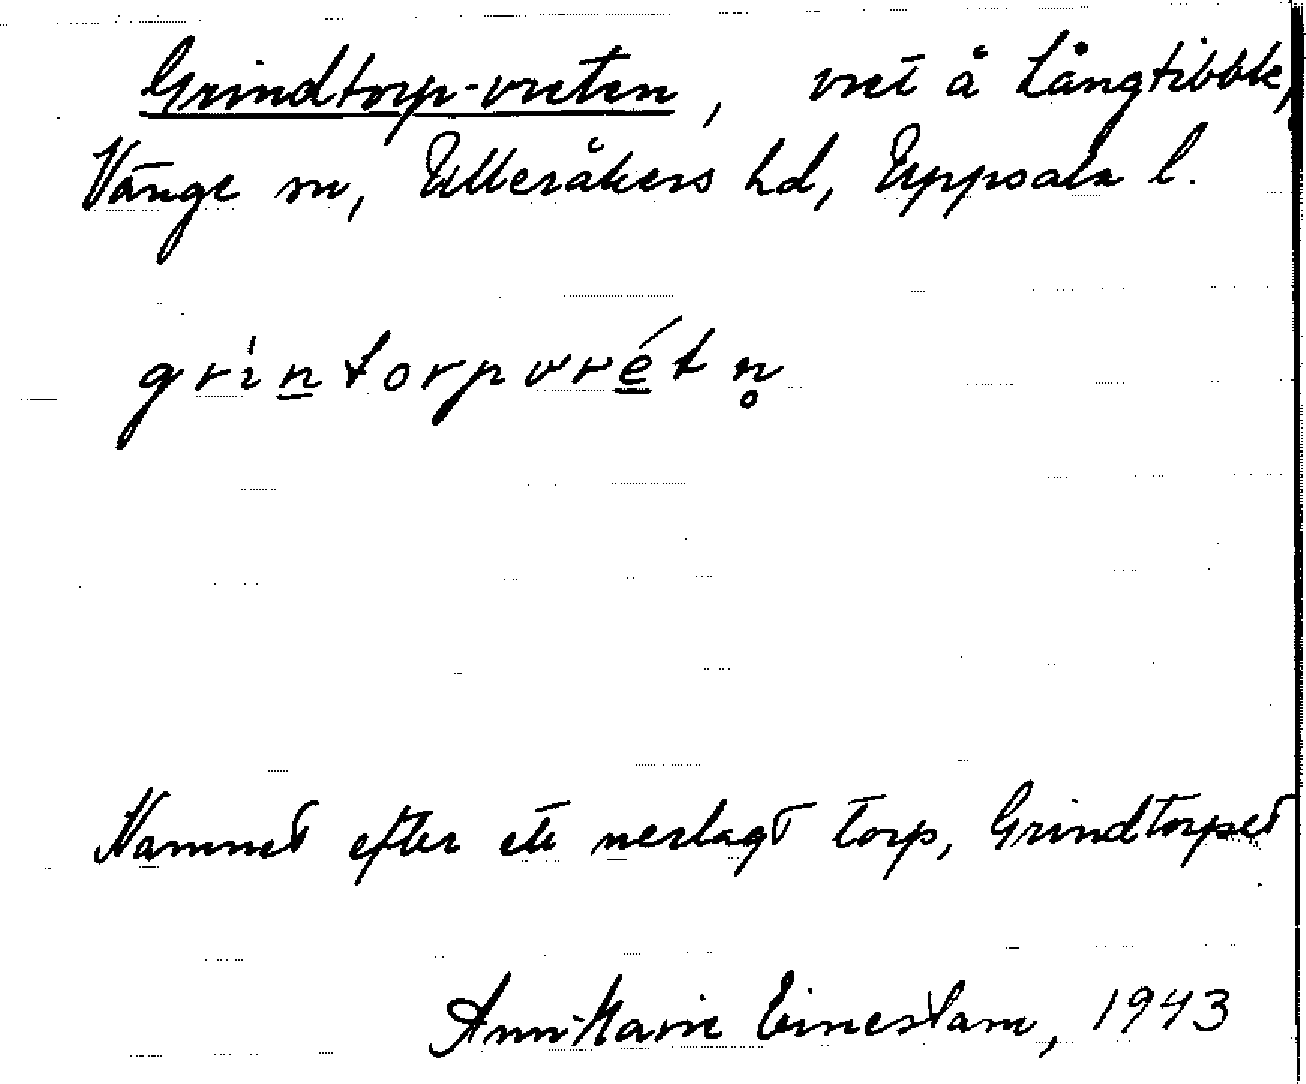 Grindtorp-vreten, vret å Långtibble,
Vänge sn, Ulleråkers hd, Uppsala l.
grìntorpvrétn̥
Namnet efter ett nerlagt torp, Grindtorpet
Ann-Marie 1943